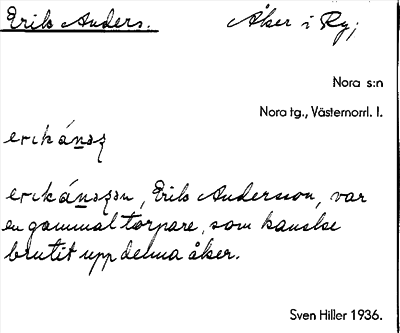 Erik Anders. Åker i Ry;
Nora s:n
Nora tg., Västernorrl. l.
erikánsz
erikánszsn, Erik Andersson, var
en gammal torpare, som kanske
brutit upp denna åker.
Sven Hiller 1936.